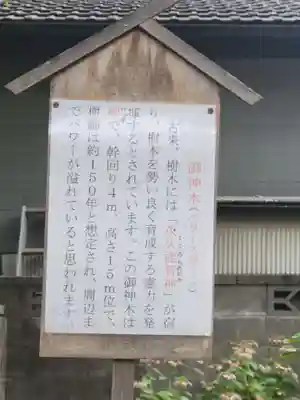 御神木
古来、樹木には「久久能智神」が宿
り、樹木を勢い良く育成する霊力を発
揮するとされています。この御神木は
幹回り4m、高さ15m位で、
樹齢は約150年と想定され、周辺ま
でパワーが溢れていると思われます。